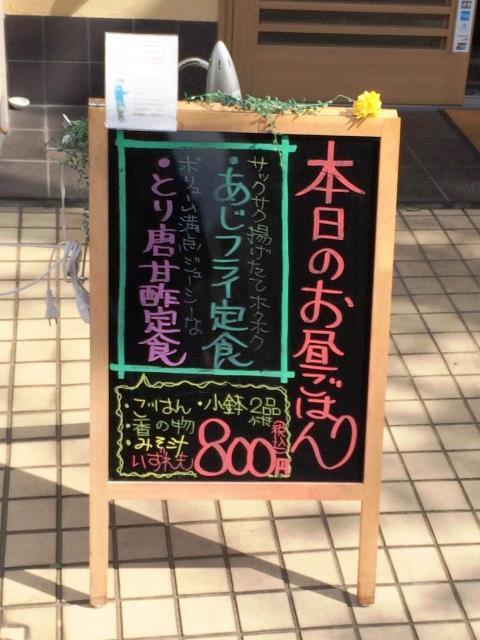 本日のお昼ごはん
サックサク揚げたてホクホク
・あじフライ定食
ボリューム満点ジューシーな
・とり唐甘酢定食
・ごはん
・香の物
・みそ汁
・小鉢2品付き
いずれも
800円(税込)